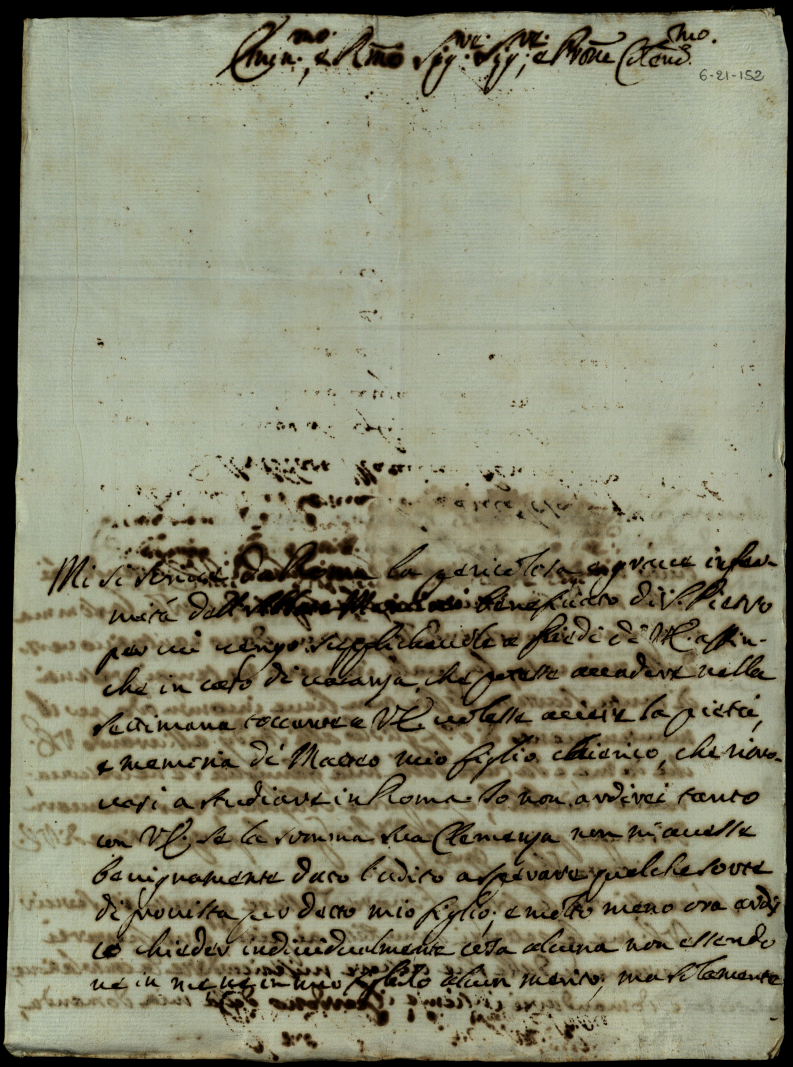 Emin.mo, e Rmo Sig.re Sig.re, e Prone Colend.mo
6-21-152
Mi si scrive da Roma la pericolosa, e grave infer-
mità dell' Beneficiato di S. Pietro
per cui vengo supplichevole a piedi di V.E. affin-
che in caso di vacanza, che potesse accadere nella
settimana toccante a V.E. volesse avere la pietà,
e memoria di Matteo mio figlio chierico, che ritro-
vasi a studiare in Roma. Io non ardirei tanto
con V.E. se la somma sua Clemenza non m'avesse
benignamente dato l'adito a sperare qualche sorte
di provista per detto mio figlio; e molto meno ora ardis
co chieder individualmente cosa alcuna non essendo
ne in me ne in mio figlio alcun merito, ma solamente